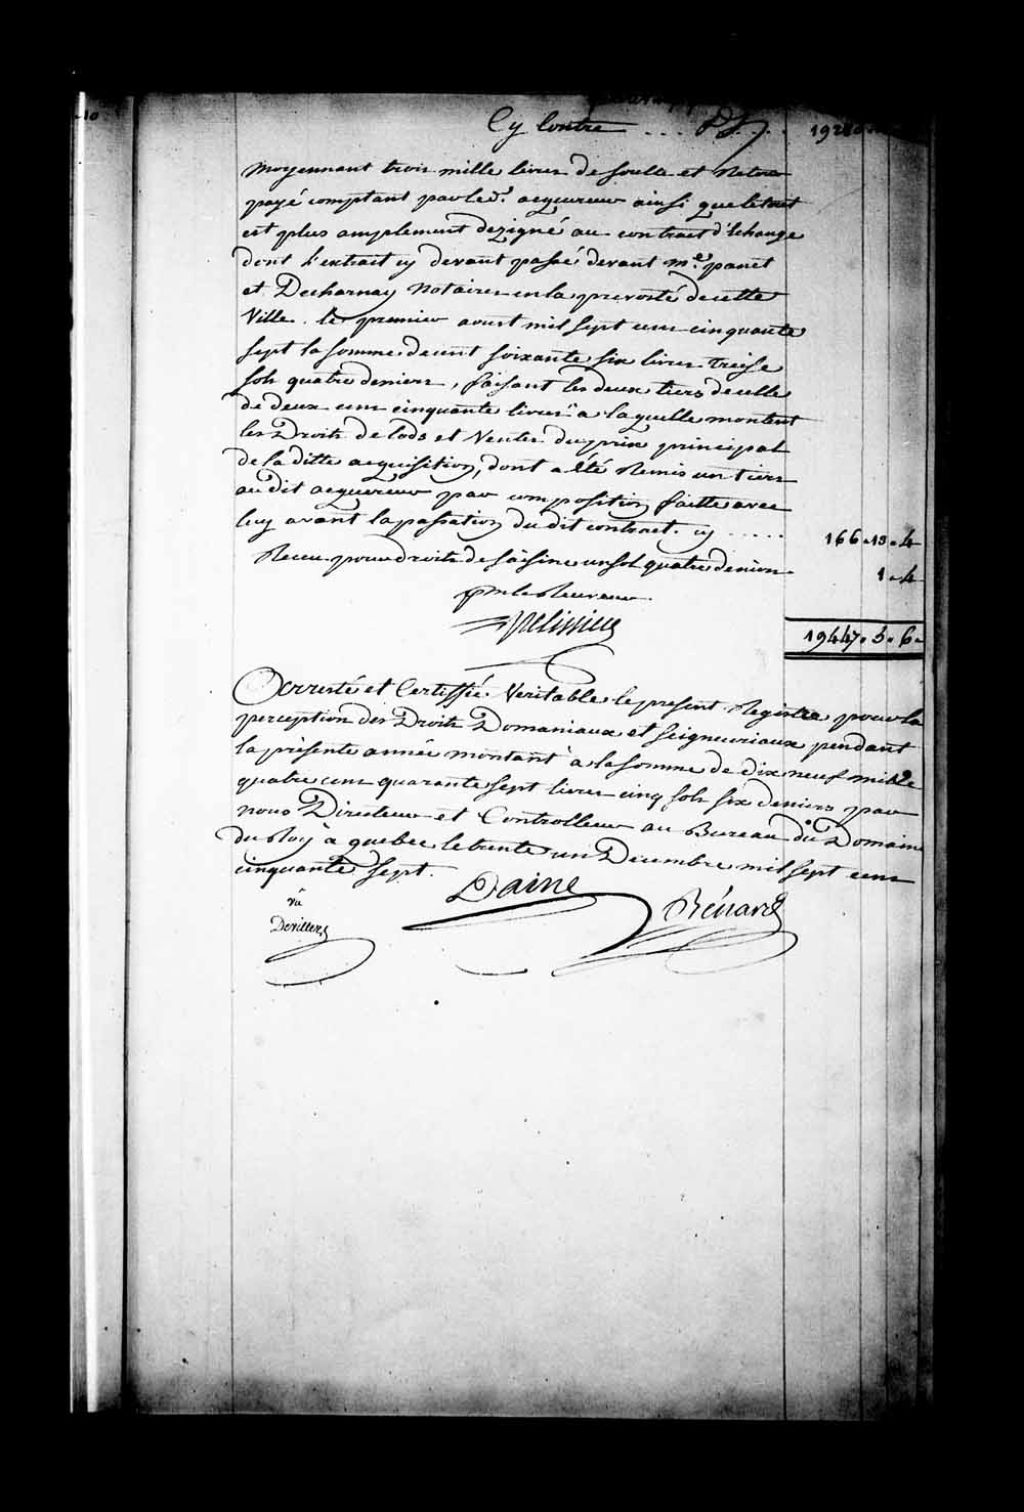 Cy Contre
moyennant trois mille livres de soulte et Retour
payé comptant par led.t acquereur ainsi que le tout
est plus amplement dezigné au contract d'Echange
dont l'extrait cy devant passé devant M.e panet
et Decharnay Notaires en la prevosté de cette
Ville. le premier aoust mil sept cens cinquante
sept la somme de cent soixante six livres treise
sols quatre deniers, faisant les deux tiers de celle
de deux cens cinquante livres a laquelle montent
les Droits de lods et Ventes du prix principal
de la ditte acquisition, dont a été Remis un tiers
au dit acquereur par composition faitte avec
luy avant la passation du dit contract. cy ..... 166.13.4
Receu pour droits de saisine un sol quatre deniers 1.4
p.r m.r le Receveur
Pelissier
19447.5.6
Arresté et Certiffié Veritable le present Registre pour la
perception des Droits Domaniaux et seigneuriaux pendant
la présente année montant à la somme de dix neuf mille
quatre cens quarante sept livres cinq sols six deniers par
nous Directeur et Controlleur au Bureau du Domaine
du Roy à quebec le trente un Decembre mil sept cens
cinquante sept.
Daine
Rénard
Vu
Devillers